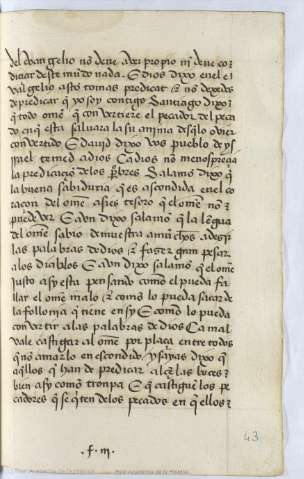 del euangelio no deue auer propio ni deue co
diciar deste mundo nada. E dios dixo en el e
uangelio asy tomas predicar & no dexedes
de predicar que yo soy contigo Santiago dixo
que todo ome que conuertiere el pecador del peca
do en que esta saluara la su anima desque lo ouier
conuertido E dauid dixo vos pueblo de ys
rael temed a dios Ca dios no menospreçia
la predicaçio de los pobres Salamo dixo que
la buena sabiduria que es ascondida en el co
raçon del ome asi es tesoro que el ome no
puede ver E aun dixo salamo que la lengua
del ome sabio demuestra a muchos a desir
las palabras de dios & faser gran pesar
a los diablos E aun dixo salamo que el ome
justo asy esta pensando como el pueda fa
llar el ome malo & como lo pueda sacar de
la follonia que tiene en sy E como lo pueda
conuertir a las palabras de dios Ca mal
vale castigar al ome por plaça entre todos
que no amarlo en escondido / ysayas dixo que
aquellos que han de predicar alçe las boses
bien asy como tronpa E que castigue los pe
cadores que se quiten de los pecados en que ellos
.f. iii.
43